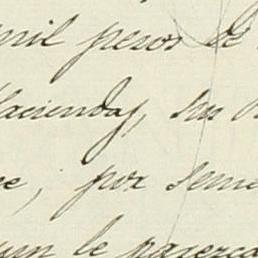 mil pesos de
Hacienda, su
por seme
le parezca